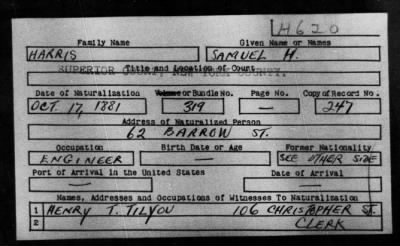 H620
Family Name Given Name or Names
HARRIS SAMUEL H.
Title and Location of Court
SUPERIOR COURT, NEW YORK COUNTY.
Date of Naturalization Volume or Bundle No. Page No. Copy of Record No.
OCT. 17, 1881 319 — 247
Address of Naturalized Person
62 BARROW ST.
Occupation Birth Date or Age Former Nationality
ENGINEER — SEE OTHER SIDE
Port of Arrival in the United States Date of Arrival
— —
Names, Addresses and Occupations of Witnesses To Naturalization
1 HENRY T. TILYOU 106 CHRISTOPHER ST.
2 CLERK